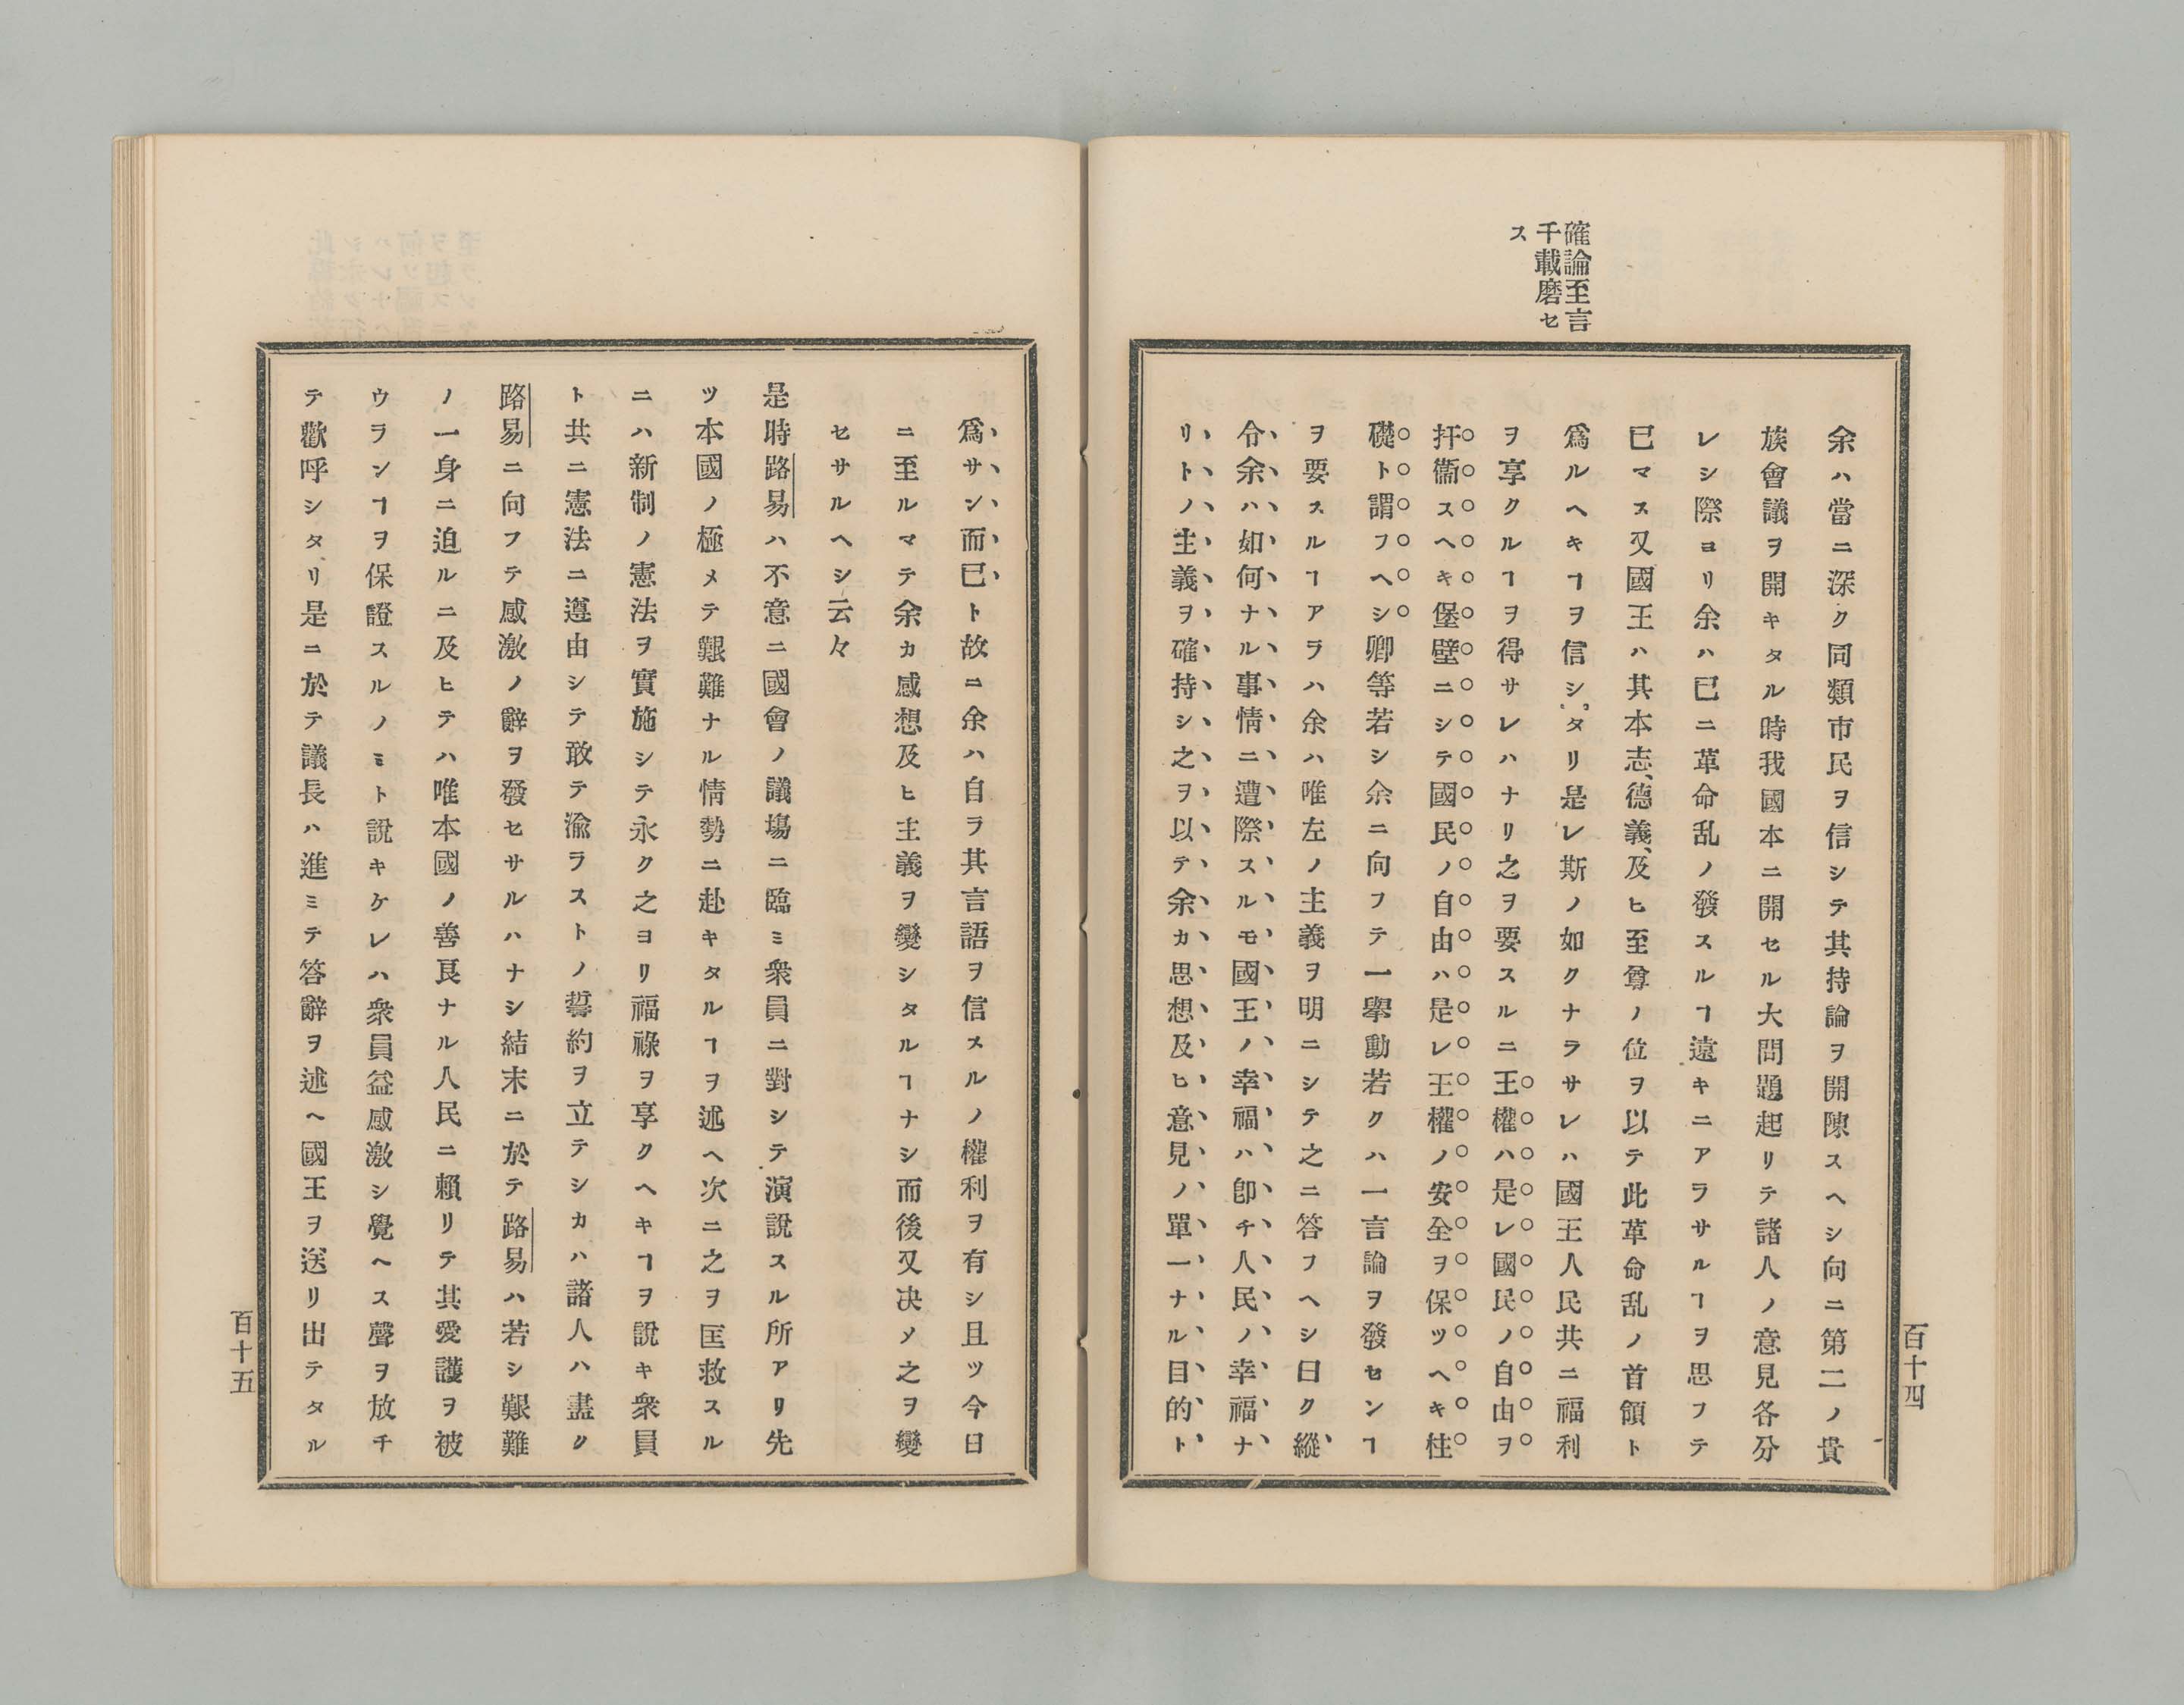 確論至言
千載磨セ
ス
余ハ當ニ深ク同類市民ヲ信シテ其持論ヲ開陳スヘシ向ニ第二ノ貴
族會議ヲ開キタル時我國本ニ開セル大問題起リテ諸人ノ意見各分
レシ際ヨリ余ハ已ニ革命乱ノ發スルヿ遠キニアラサルヿヲ思フテ
已マス又國王ハ其本志、德義、及ヒ至尊ノ位ヲ以テ此革命乱ノ首領ト
爲ルヘキヿヲ信シタリ是レ斯ノ如クナラサレハ國王人民共ニ福利
ヲ享クルヿヲ得サレハナリ之ヲ要スルニ王權ハ是レ國民ノ自由ヲ
扞衞スヘキ堡壁ニシテ國民ノ自由ハ是レ王權ノ安全ヲ保ツヘキ柱
礎ト謂フヘシ卿等若シ余ニ向フテ一擧動若クハ一言論ヲ發センヿ
ヲ要スルヿアラハ余ハ唯左ノ主義ヲ明ニシテ之ニ答フヘシ曰ク縱
令余ハ如何ナル事情ニ遭際スルモ國王ノ幸福ハ卽チ人民ノ幸福ナ
リトノ主義ヲ確持シ之ヲ以テ余カ思想及ヒ意見ノ單一ナル目的ト
百十四
爲サン而已ト故ニ余ハ自ラ其言語ヲ信スルノ權利ヲ有シ且ツ今日
ニ至ルマテ余カ感想及ヒ主義ヲ變シタルヿナシ而後又决メ之ヲ變
セサルヘシ云々
是時路易ハ不意ニ國會ノ議塲ニ臨ミ衆員ニ對シテ演說スル所アリ先
ツ本國ノ極メテ艱難ナル情勢ニ赴キタルヿヲ述ヘ次ニ之ヲ匡救スル
ニハ新制ノ憲法ヲ實施シテ永ク之ヨリ福祿ヲ享クヘキヿヲ說キ衆員
ト共ニ憲法ニ遵由シテ敢テ渝ラストノ誓約ヲ立テシカハ諸人ハ盡ク
路易ニ向フテ感激ノ辭ヲ發セサルハナシ結末ニ於テ路易ハ若シ艱難
ノ一身ニ迫ルニ及ヒテハ唯本國ノ善良ナル人民ニ賴リテ其愛護ヲ被
ウランヿヲ保證スルノミト說キケレハ衆員益感激シ覺ヘス聲ヲ放チ
テ歡呼シタリ是ニ於テ議長ハ進ミテ答辭ヲ述ヘ國王ヲ送リ出テタル
百十五